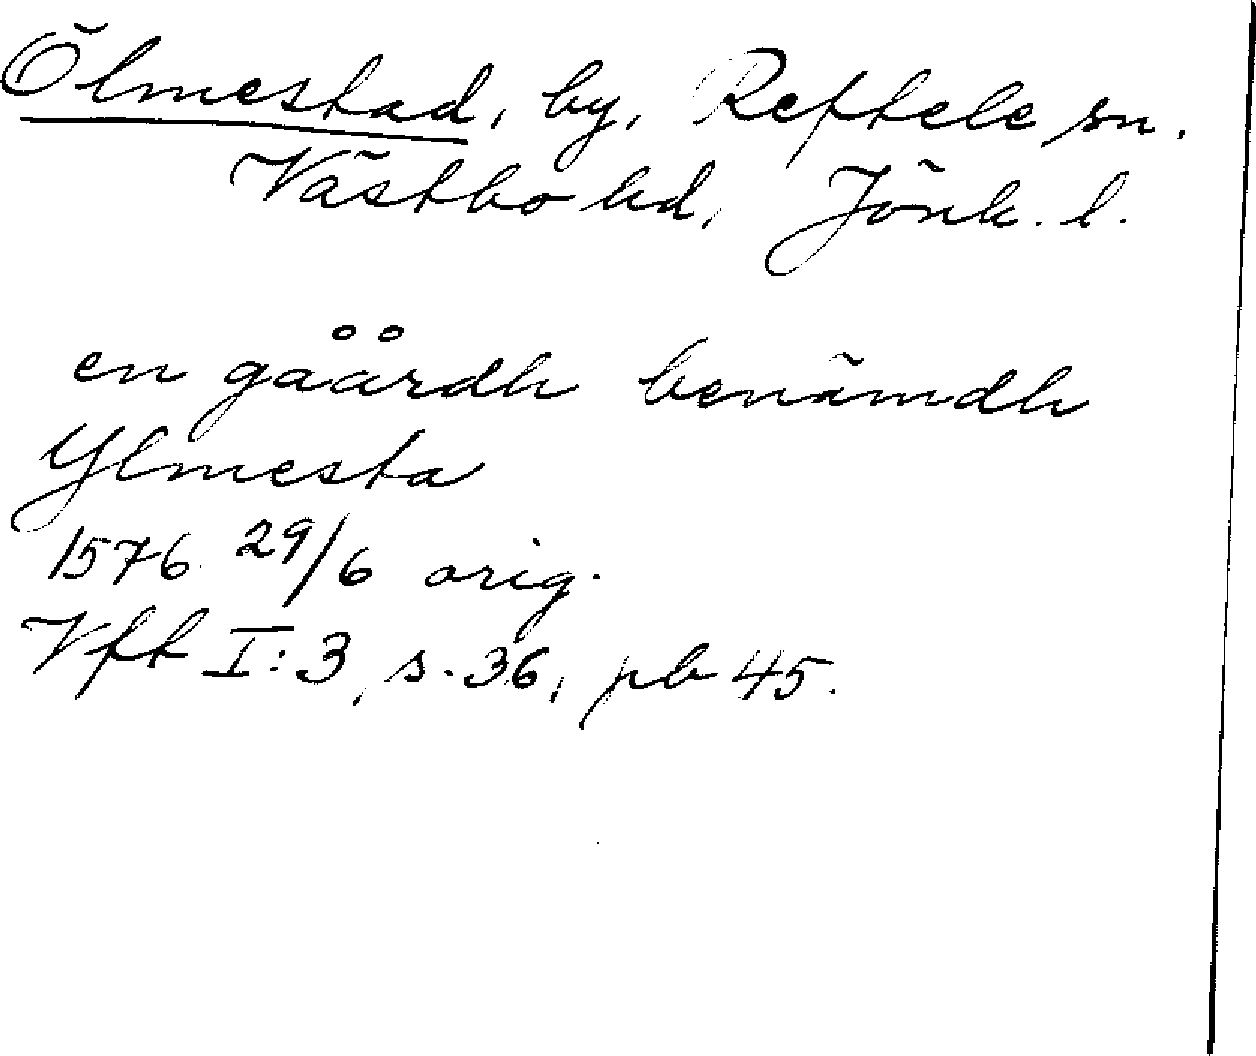 Ölmestad, by, Reftele sn.
Västbo hd, Jönk. l.
en gåårdh benämdh
Ylmesta
1576 29/6 orig.
Vfft I:3, s. 36, pb 45.